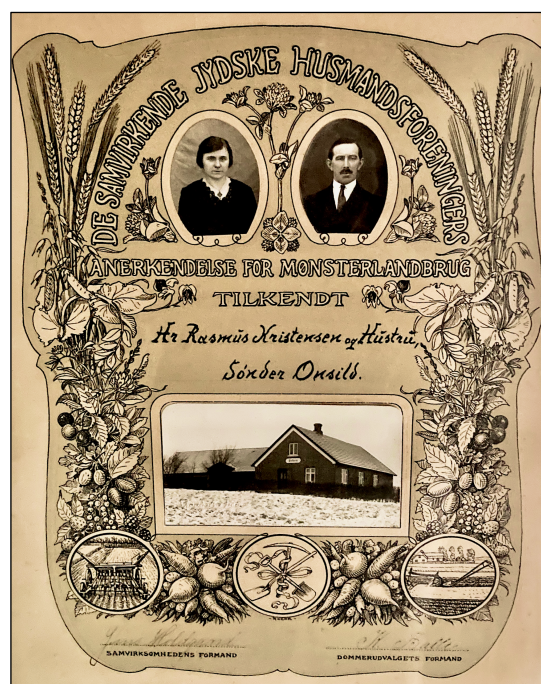 DE SAMVIRKENDE JYDSKE HUSMANDSFORENINGERS
ANERKENDELSE FOR MØNSTERLANDBRUG
TILKENDT
Hr Rasmus Kristensen og Hustru,
Sönder Onsild.
SAMVIRKSOMHEDENS FORMAND
DOMMERUDVALGETS FORMAND